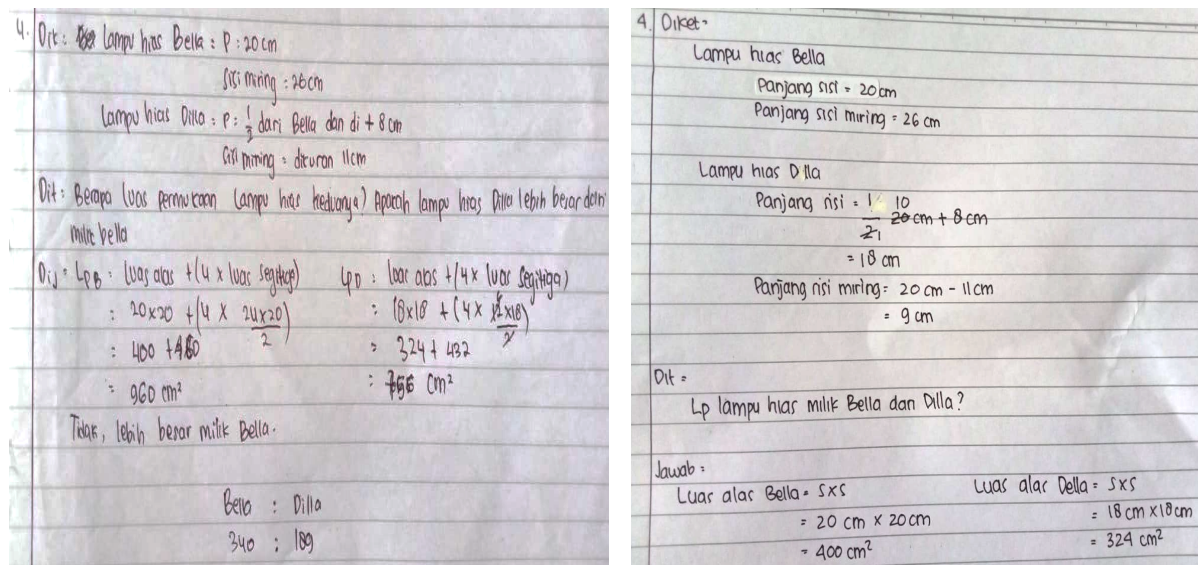 4. Dik : lampu hias Bella : P : 20 cm
sisi miring : 26 cm
Lampu hias Dilla : P : 1/2 dari Bella dan di + 8 cm
sisi miring : dikuran 11 cm
Dit : Berapa luas permukaan lampu hias keduanya? Apakah lampu hias Dilla lebih besar dari
milik bella
Dij : LPB : luas alas + (4 x luas segitiga)
: 20x20 + (4 x 24x20/2)
: 400 +
: 960 cm²
LPD : luas alas + (4 x luas segitiga)
: 18x18 + (4 x 12x18/2)
: 324 + 432
: 756 cm²
Tidak, lebih besar milik Bella.
Bella : Dilla
340 : 189
4. Diket =
Lampu hias Bella
Panjang sisi = 20 cm
Panjang sisi miring = 26 cm
Lampu hias Dilla
Panjang sisi = 1/2 1 20 10 cm + 8 cm
= 18 cm
Panjang sisi miring = 20 cm - 11 cm
= 9 cm
Dit =
Lp lampu hias milik Bella dan Dilla?
Jawab =
Luas alas Bella = s x s
= 20 cm x 20 cm
= 400 cm²
Luas alas Della = s x s
= 18 cm x 18 cm
= 324 cm²